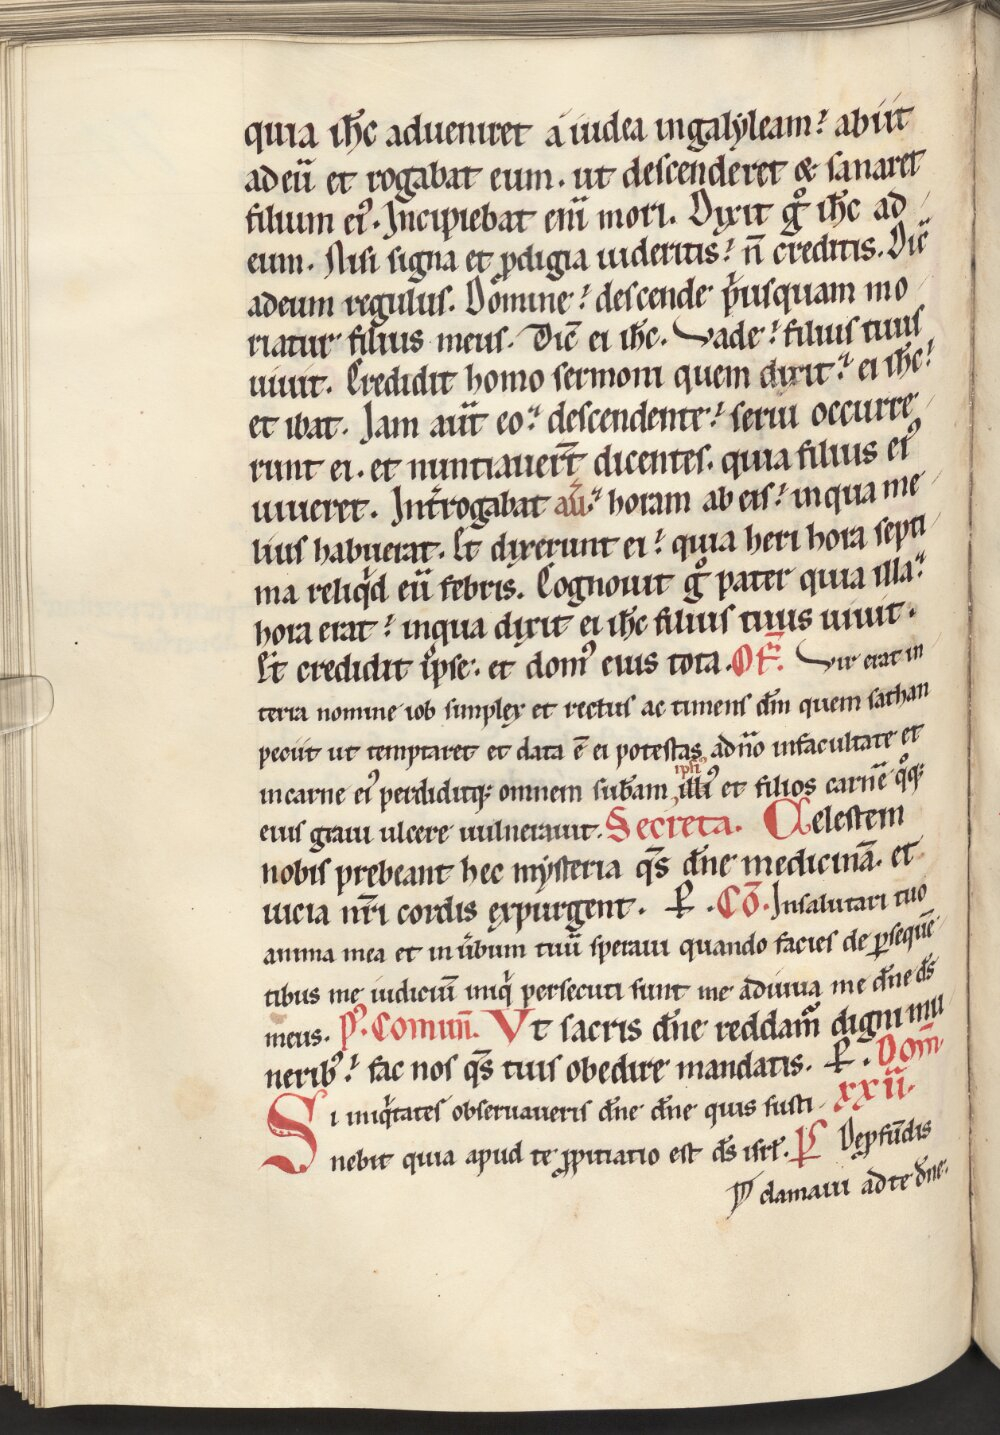 quia ihc̄ adueniret a iudea in galyleam? abiit
ad eū et rogabat eum. ut descenderet & sanaret
filium ei᷒. Incipiebat eni᷒ mori. Dixit gͦ ihc̄ ad
eum. Nisi signa et ꝓdigia uideritis? n̄ creditis. Dic̄
ad eum regulus. Domine? descende pͥusquam mo
riatur filius meus. Dic̄ ei ihc̄. Vade? filius tuus
uiuit. Credidit homo sermoni quem dixit? ei ihc̄?
et ibat. Jam aūt eo? descendente? serui occurre
runt ei. et nuntiauer̄t dicentes. quia filius ei᷒
uiueret. Int̄rogabat aū? horam ab eis? in qua me
lius habuerat. Et dixerunt ei? quia heri hora septi
ma reliqͥd eū febris. Cognouit gͦ pater quia illa?
hora erat? in qua dixit ei ihc̄ filius tuus uiuit.
Et credidit ipse. et dom᷒ eius tota. Of̄. Vir erat in
terra nomine iob simplex et rectus ac timens dm̄ quem sathan
peciit ut temptaret et data ē ei potestas a dn̄o in facultate et
in carne ei᷒ perdiditqꝫ omnem sub̄am illi᷒ et filios carnē qͦqꝫ
ipsi᷒
eius graui ulcere uulnerauit. Secreta. Celestem
nobis prebeant hec mysteria qs̄ dn̄e medicinā. et
uicia nr̄i cordis expurgent. P̱. Cō. In salutari tuo
anima mea et in u̓bum tuū speraui quando facies de ꝑsequē
tibus me iudiciū iniqͥ persecuti sunt me adiuua me dn̄e ds̄
meus. P᷒. Comun̄. Vt sacris dn̄e reddam̄ digni mu
nerib᷒? fac nos qs̄ tuis obedire mandatis. P̱. Dom̄.
Si iniqͥtates obseruaueris dn̄e dn̄e quis susti xxii.
nebit quia apud te ꝓpitiatio est ds̄ isrl̄. Ps De ꝓfūdis
V̸ clamaui ad te dn̄e.